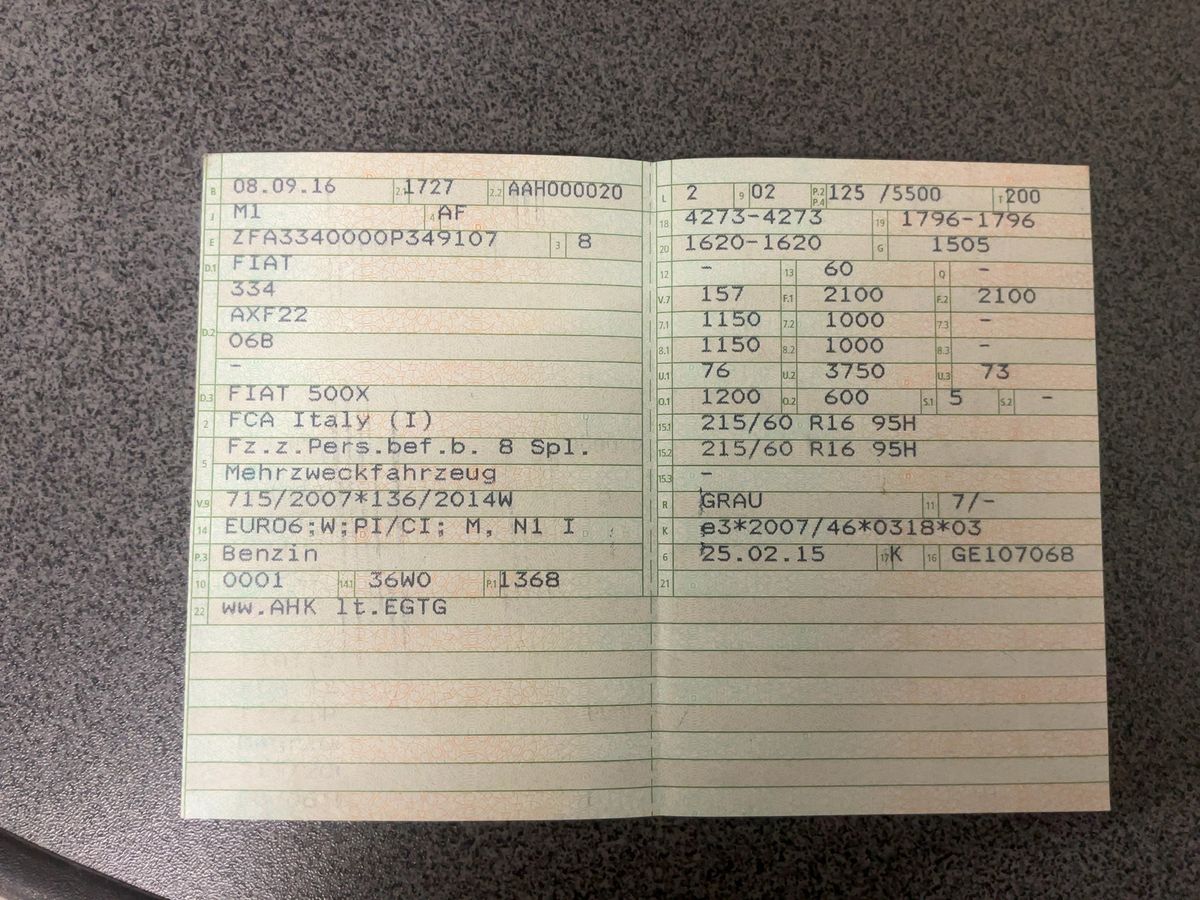 B 08.09.16 2.1 1727 2.2 AAH000020
J M1 4 AF
E ZFA3340000P349107 3 8
D.1 FIAT
334
AXF22
D.2 06B
-
D.3 FIAT 500X
2 FCA Italy (I)
Fz.z.Pers.bef.b. 8 Spl.
5 Mehrzweckfahrzeug
V.9 715/2007*136/2014W
14 EURO6;W;PI/CI; M, N1 I
P.3 Benzin
10 0001 14.1 36W0 P.1 1368
22 ww.AHK lt.EGTG
L 2 9 02 P.2 P.4 125 /5500 T 200
18 4273-4273 19 1796-1796
20 1620-1620 G 1505
12 - 13 60 Q -
V.7 157 F.1 2100 F.2 2100
7.1 1150 7.2 1000 7.3 -
8.1 1150 8.2 1000 8.3 -
U.1 76 U.2 3750 U.3 73
O.1 1200 O.2 600 S.1 5 S.2 -
15.1 215/60 R16 95H
15.2 215/60 R16 95H
15.3 -
R GRAU 11 7/-
K e3*2007/46*0318*03
6 25.02.15 17 K 16 GE107068
21